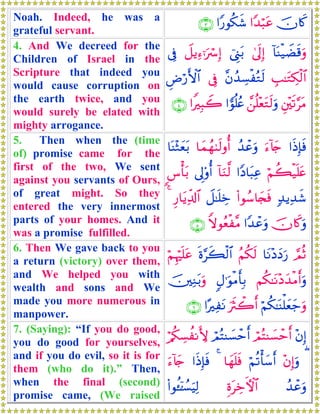 Noah. Indeed, he was a
grateful servant.
كَانَ عَبْدًا شَكُورًا ﴿٣﴾
4. And We decreed for the
Children of Israel in the
Scripture that indeed you
would cause corruption on
the earth twice, and you
would surely be elated with
mighty arrogance.
وَقَضَيْنَآ إِلَىٰ بَنِىٓ إِسْرَٰٓءِيلَ فِى
ٱلْكِتَٰبِ لَتُفْسِدُنَّ فِى ٱلْأَرْضِ
مَرَّتَيْنِ وَلَتَعْلُنَّ عُلُوًّا كَبِيرًا ﴿٤﴾
5. Then when the (time
of) promise came for the
first of the two, We sent
against you servants of Ours,
of great might. So they
entered the very innermost
parts of your homes. And it
was a promise fulfilled.
فَإِذَا جَآءَ وَعْدُ أُولَىٰهُمَا بَعَثْنَا
عَلَيْكُمْ عِبَادًا لَّنَآ أُو۟لِى بَأْسٍ
شَدِيدٍ فَجَاسُوا۟ خِلَٰلَ ٱلدِّيَارِ ۚ
وَكَانَ وَعْدًا مَّفْعُولًا ﴿٥﴾
6. Then We gave back to you
a return (victory) over them,
and We helped you with
wealth and sons and We
made you more numerous in
manpower.
ثُمَّ رَدَدْنَا لَكُمُ ٱلْكَرَّةَ عَلَيْهِمْ
وَأَمْدَدْنَٰكُم بِأَمْوَٰلٍ وَبَنِينَ
وَجَعَلْنَٰكُمْ أَكْثَرَ نَفِيرًا ﴿٦﴾
7. (Saying): “If you do good,
you do good for yourselves,
and if you do evil, so it is for
them (who do it).” Then,
when the final (second)
promise came, (We raised
إِنْ أَحْسَنتُمْ أَحْسَنتُمْ لِأَنفُسِكُمْ ۖ
وَإِنْ أَسَأْتُمْ فَلَهَا ۚ فَإِذَا جَآءَ
وَعْدُ ٱلْءَاخِرَةِ لِيَسُۥٓـُٔوا۟